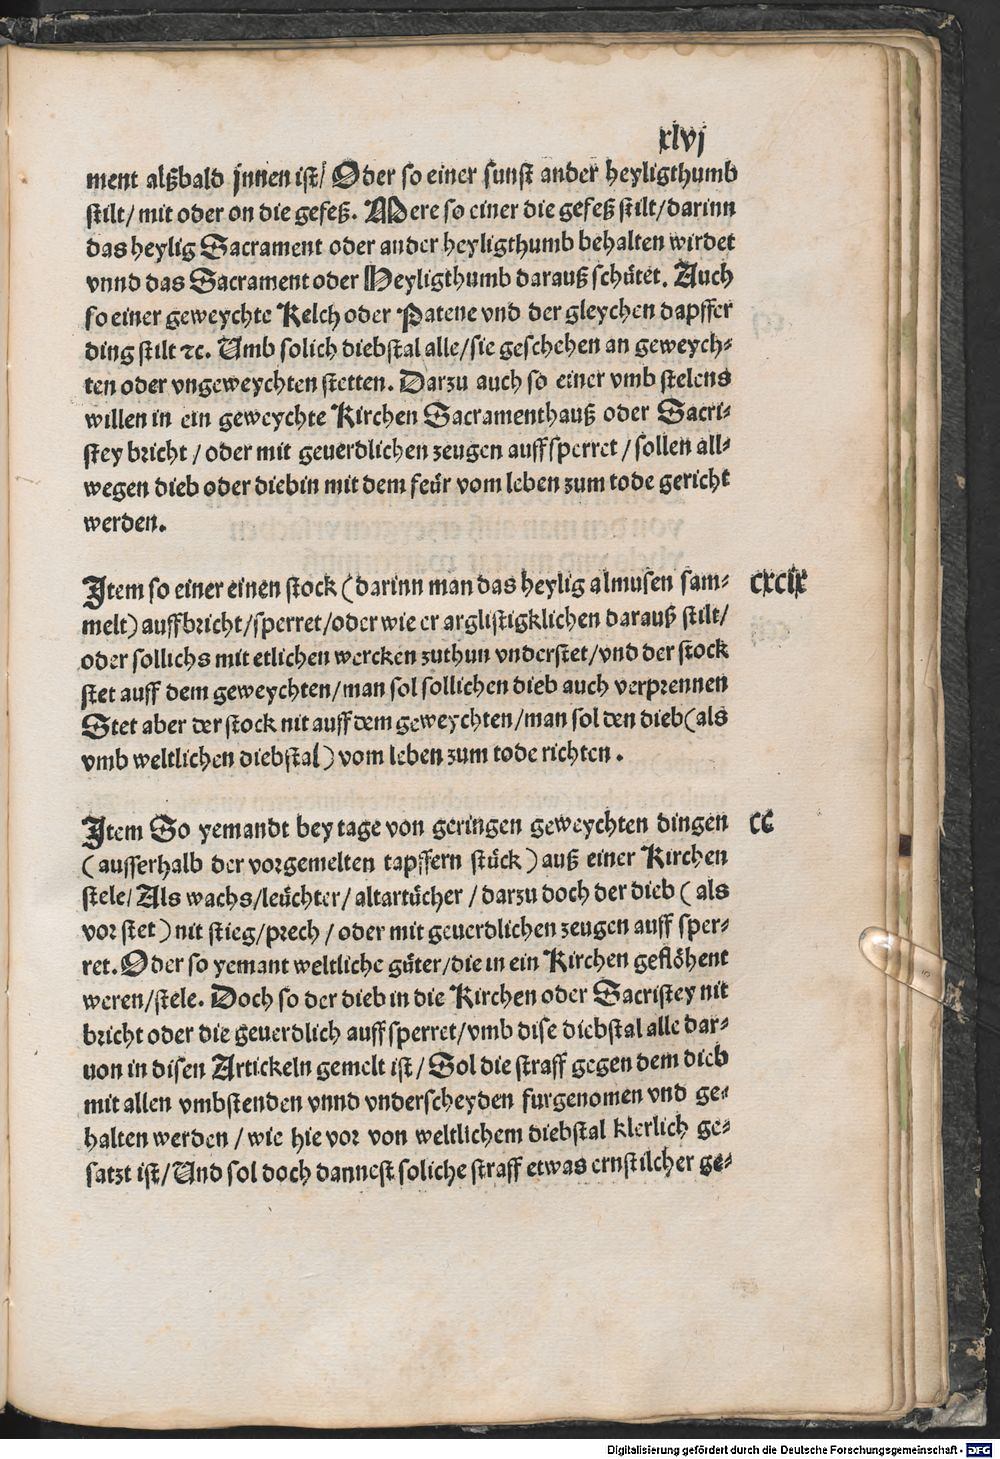 xlvj
ment alßbald jnnen ist/ Oder so einer sunst ander heyligthumb
stilt/ mit oder on die gefeß. Mere so einer die gefeß stilt/darinn
das heylig Sacrament oder ander heyligthumb behalten wirdet
vnnd das Sacrament oder Heyligthumb darauß schütet. Auch
so einer geweychte Kelch oder Patene vnd der gleychen dapffer
ding stilt ꝛc. Umb solich diebstal alle/sie geschehen an geweych⸗
ten oder vngeweychten stetten. Darzu auch so einer vmb stelens
willen in ein geweychte Kirchen Sacramenthauß oder Sacri⸗
stey bricht / oder mit geuerdlichen zeugen auffsperret / sollen all⸗
wegen dieb oder diebin mit dem feür vom leben zum tode gericht
werden.
Item so einer einen stock (darinn man das heylig almusen sam⸗ cxcix
melt) auffbricht/sperret/oder wie er arglistigklichen darauß stilt/
oder sollichs mit etlichen wercken zuthun vnderstet/vnd der stock
stet auff dem geweychten/man sol sollichen dieb auch verprennen
Stet aber der stock nit auff dem geweychten/man sol den dieb(als
vmb weltlichen diebstal) vom leben zum tode richten .
Item So yemandt bey tage von geringen geweychten dingen cc
(ausserhalb der vorgemelten tapffern stück) auß einer Kirchen
stele/ Als wachs/leüchter/ altartücher / darzu doch der dieb ( als
vor stet) nit stieg/prech / oder mit geuerdlichen zeugen auff sper⸗
ret. Oder so yemant weltliche güter/die in ein Kirchen geflöhent
weren/stele. Doch so der dieb in die Kirchen oder Sacristey nit
bricht oder die geuerdlich auffsperret/vmb dise diebstal alle dar⸗
uon in disen Artickeln gemelt ist/ Sol die straff gegen dem dieb
mit allen vmbstenden vnnd vnderscheyden furgenomen vnd ge⸗
halten werden / wie hie vor von weltlichem diebstal klerlich ge⸗
satzt ist/ Und sol doch dannest soliche straff etwas ernstilcher ge⸗
Digitalisierung gefördert durch die Deutsche Forschungsgemeinschaft - DFG